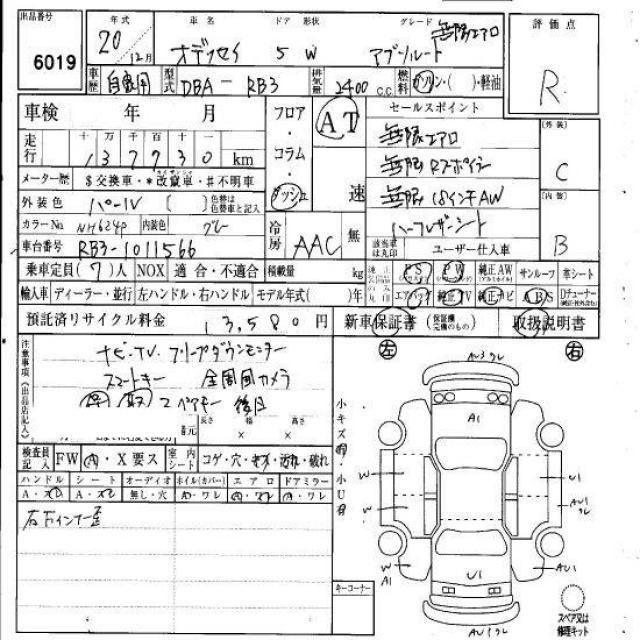 出品番号 年式 車名 ドア形状 グレード 無限エアロ 評価点
6019 20 12月 オデッセイ 5 W アブソルート R
車歴 自家用 型式 DBA-RB3 排気量 2400 C.C. 燃料 ガソリン・( )・軽油
車検 年 月 フロア・コラム・ダッシュ AT 速 セールスポイント [外装]
走行 十 万 千 百 十 一 無限エアロ C
137730 km 無限Rスポイラー
メーター歴 $交換車・*改竄車・#不明車 無限18インチAW [内装]
外装色 パール ( ) 色替は色替車と記入 ハーフレザーシート B
カラーNo NH624P 内装色 グレー 冷房 AAC 無 該当車は丸印 ユーザー仕入車
車台番号 RB3-1011566
乗車定員 (7)人 NOX 適合・不適合 積載量 kg PS PW 純正AW サンルーフ 革シート
輸入車 ディーラー・並行 左ハンドル・右ハンドル モデル年式( )年 エアバッグ 純正TV 純正ナビ ABS Dチューナー
預託済リサイクル料金 13,580円 新車保証書 (保証継 完備のもの) 取扱説明書
注意事項(出品店記入) ナビ・TV フリップダウンモニター 左 右
スマートキー 全周囲カメラ
スペアキー 後日
長さ 幅 高さ
× ×
検査員記入 FW 内・X要ス 室内シート コゲ・穴・キズ・汚れ・破れ
ハンドル シート オーディオ ホイル(カバー) エアロ ドアミラー
無し・穴
右下インナー歪
小キズ
小U
AV3ワレ
A1
W U1
W AU1ワレ
W A1 AU1
U1
AV1ワレ
キーコーナー
スペア又は修理キット